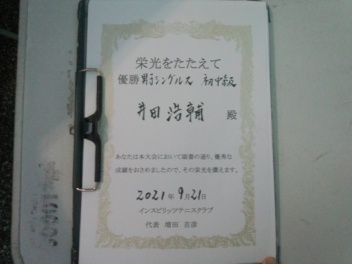 栄光をたたえて
優勝 男子シングルス 初中級
井田 浩輔 殿
あなたは本大会において頭書の通り、優秀な
成績をおさめましたので、その栄光を讃えます。
2021年 9月21日
インスピリッツテニスクラブ
代表 増田 吉彦